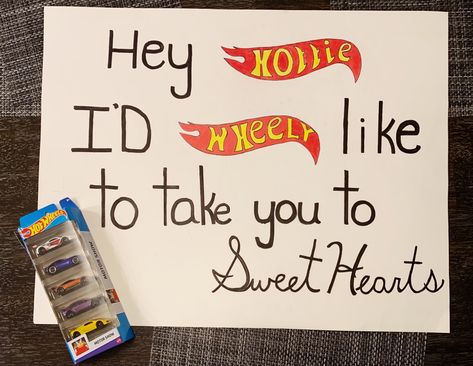 Hey Hollie
I'D WHEELY like
to take you to
Sweet Hearts
Hot WHEELS
MOTOR SHOW
MOTOR SHOW